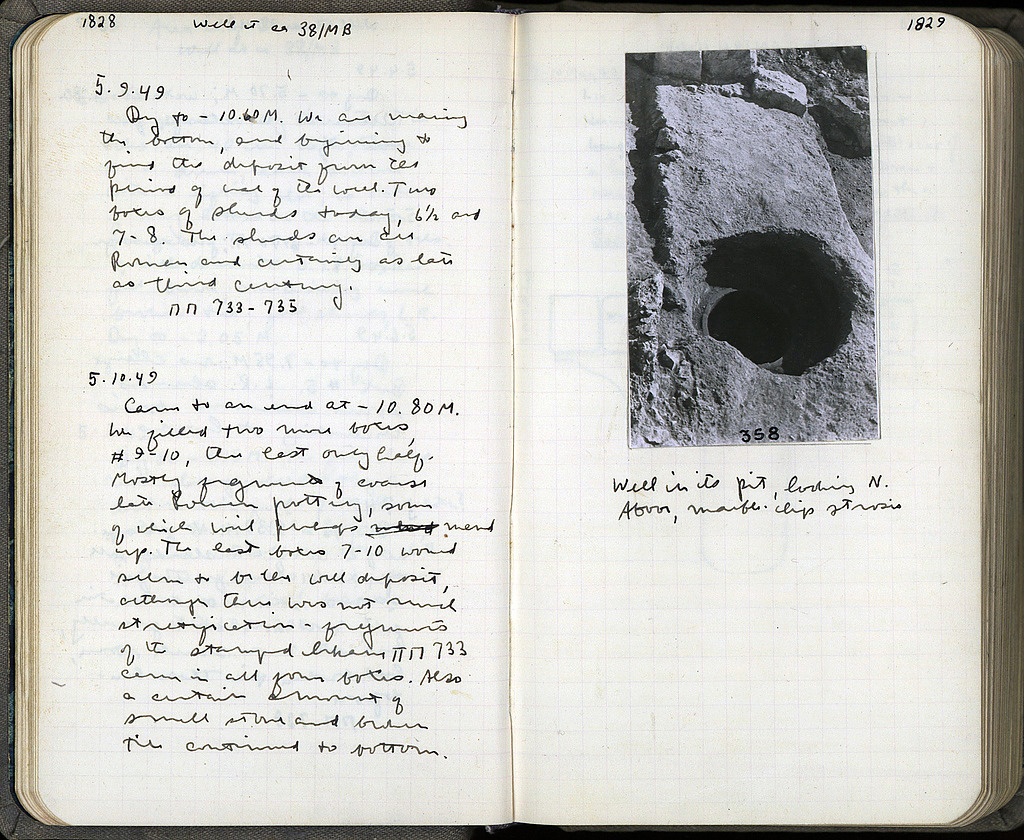 1828
Well at ca 38/MB
5.9.49
Dug to - 10.60 M. We are nearing
the bottom, and beginning to
find the deposit from the
period of use of the well. Two
boxes of sherds today, 6½ and
7-8. The sherds are all
Roman and certainly as late
as third century.
ΠΠ 733-735
5.10.49
Came to an end at - 10.80 M.
We filled two more boxes
#9-10, the last only half.
Mostly fragments of coarse
late Roman pottery, some
of which will perhaps mend
up. The last boxes 7-10 would
seem to be the well deposit,
although there was not much
stratification - fragments
of the stamped ΠΠ 733
came in all four boxes. Also
a certain amount of
small stone and broken
tile continued to bottom.
1829
358
Well in its pit, looking N.
Above, marble-chip strosis